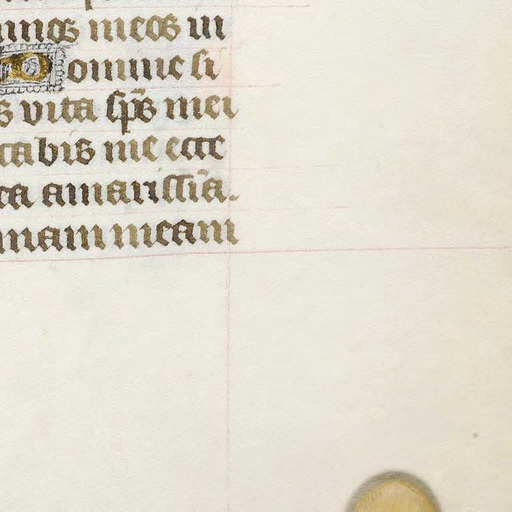 annos meos in
Domine si
s vita sp̄s mei
tabis me ecce
ea amarissīa.
imam meam